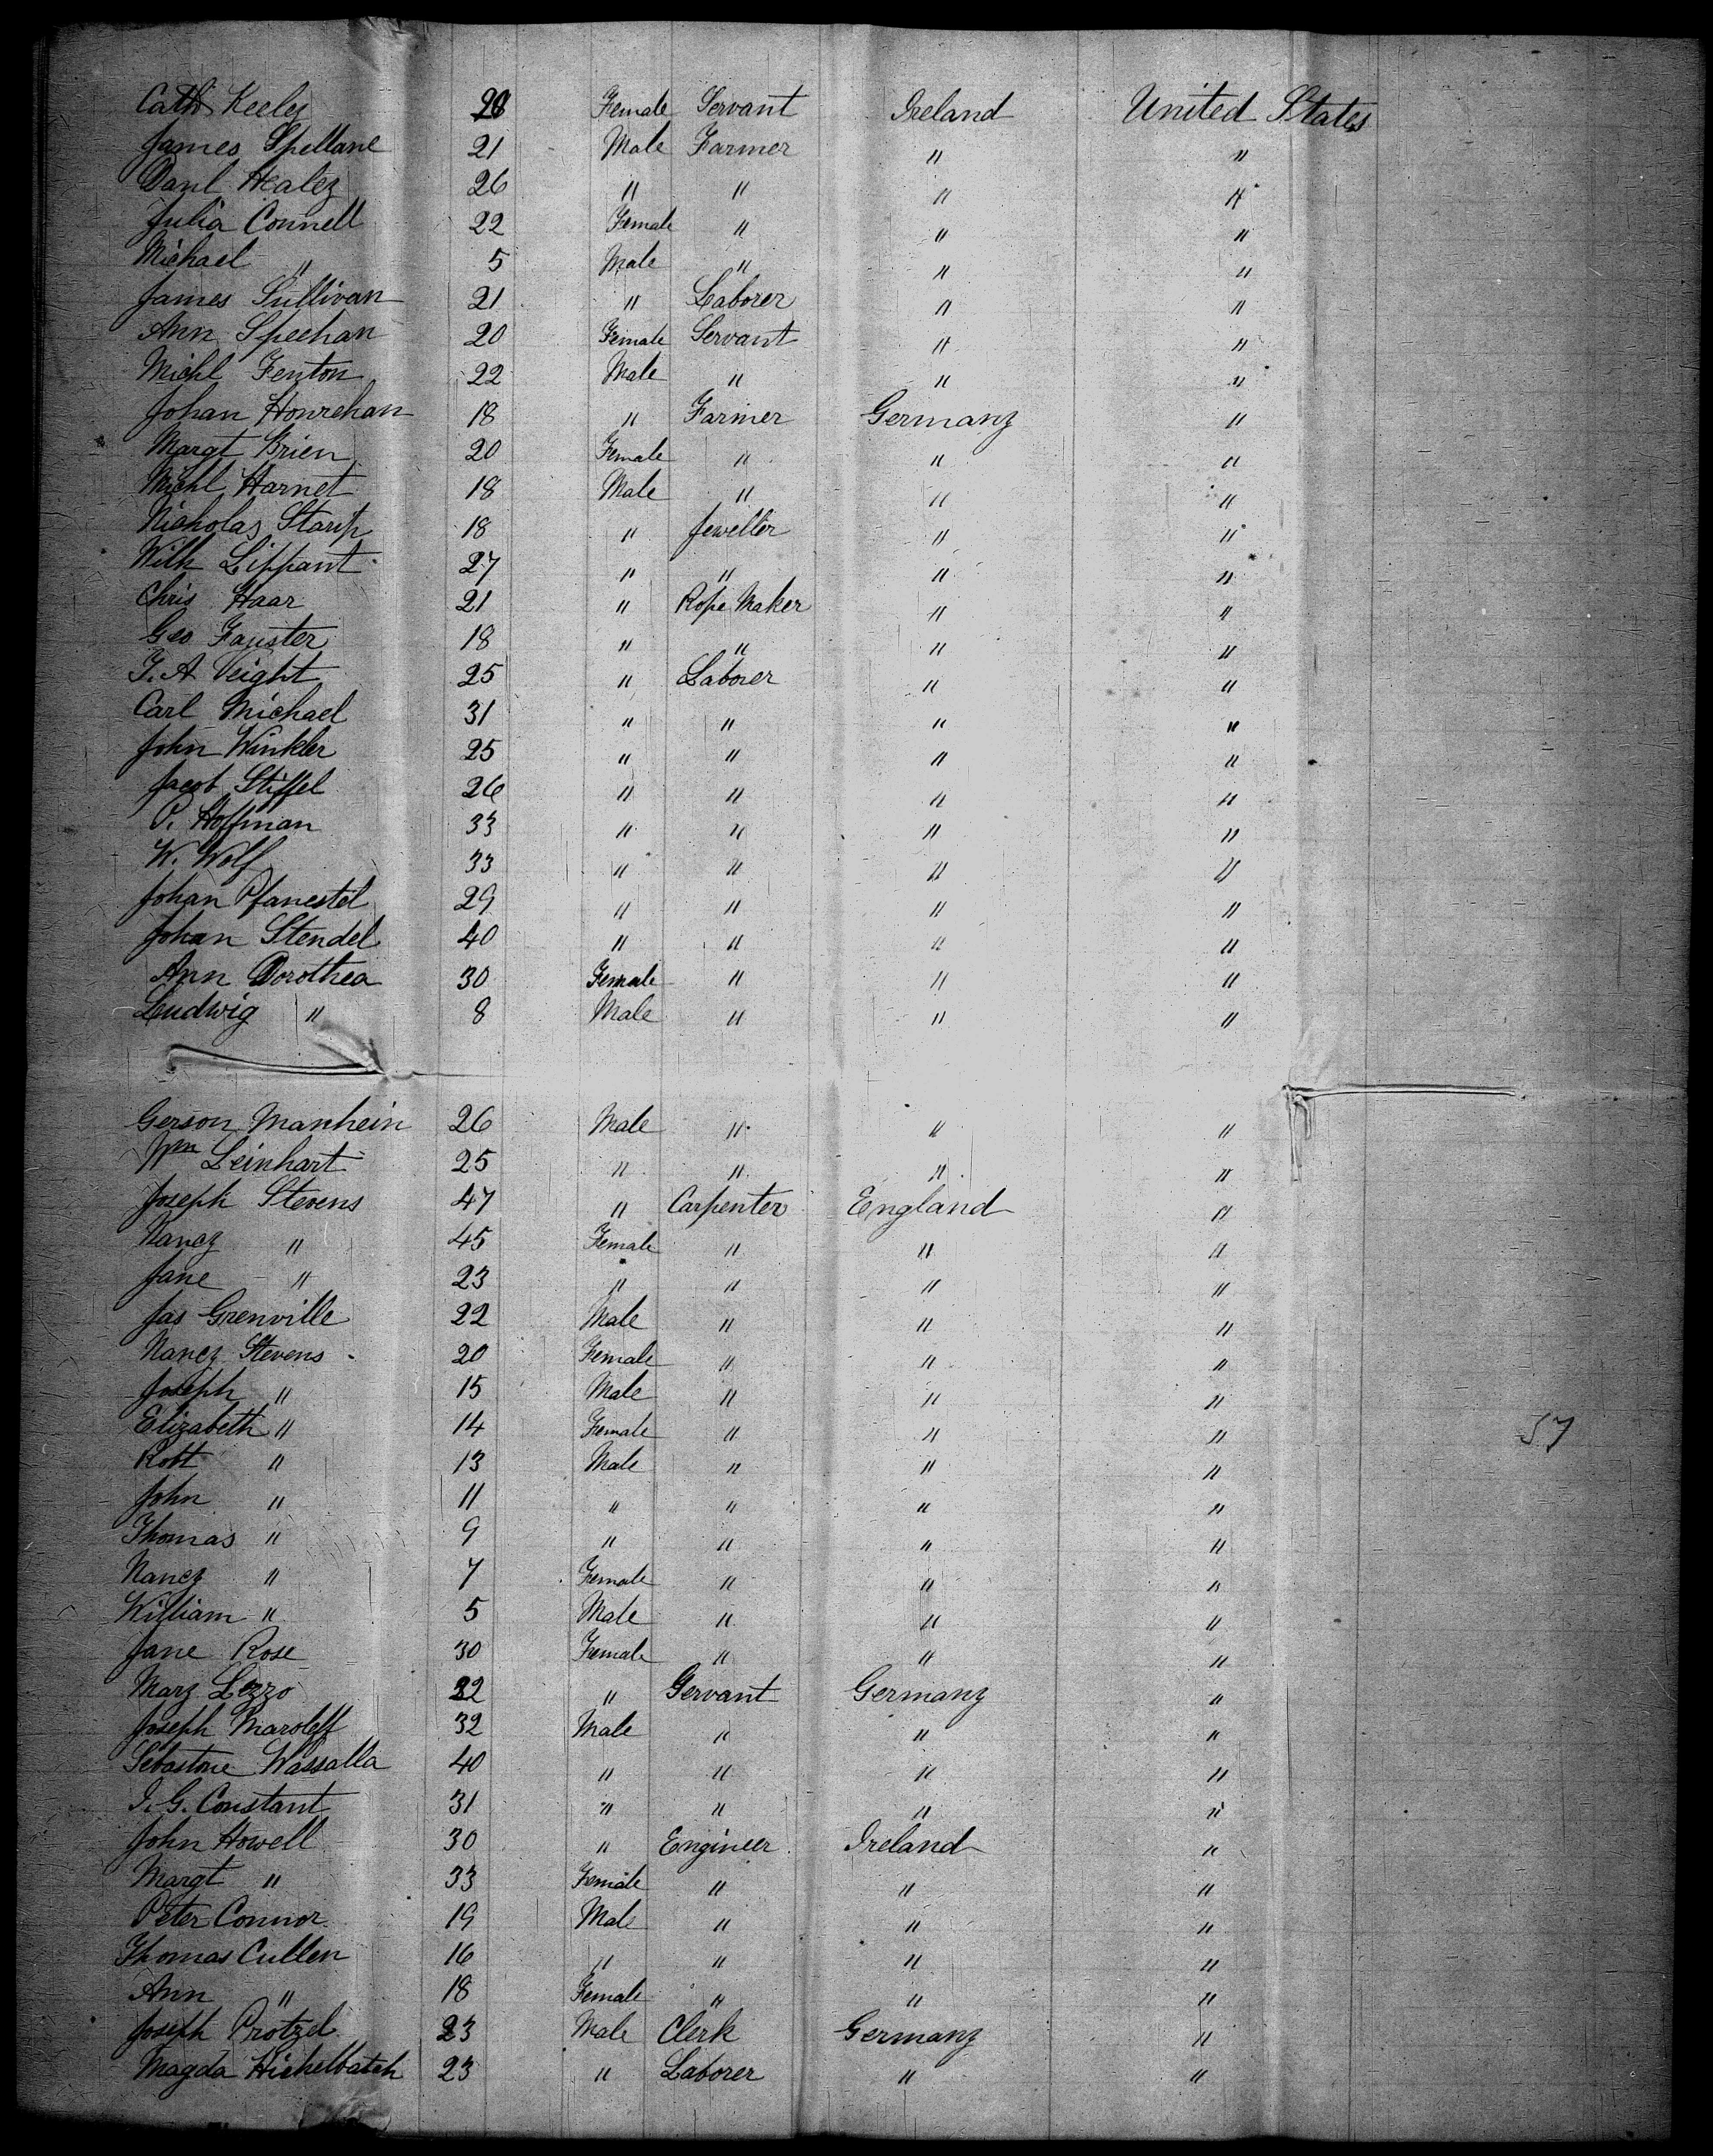 Cath Keeley 28 Female Servant Ireland United States
James Spellane 21 Male Farmer " "
Danl Healey 26 " " " "
Julia Connell 22 Female " " "
Michael " 5 Male " " "
James Sullivan 21 " Laborer " "
Ann Speehan 20 Female Servant " "
Michl Fenton 22 Male " " "
Johan Honrehan 18 " Farmer Germany "
Margt Brien 20 Female " " "
Michl Harnet 18 Male " " "
Nicholas 18 " Jeweller " "
Wilh Lippant 27 " " " "
Chris Haar 21 " Rope Maker " "
Geo Fauster 18 " " " "
J. A Veight 25 " Laborer " "
Carl Michael 31 " " " "
John Winkler 25 " " " "
Jacob Stiffel 26 " " " "
P. Hoffman 33 " " " "
W. Wolf 33 " " " "
Johan Pfanestel 29 " " " "
Johan Stendel 40 " " " "
Ann Dorothea 30 Female " " "
Ludwig " 8 Male " " "
Gerson Manhein 26 Male " " "
Wm Leinhart 25 " " " "
Joseph Stevens 47 " Carpenter England "
Nancy " 45 Female " " "
Jane " 23 " " " "
Jas Grenville 22 Male " " "
Nancy Stevens 20 Female " " "
Joseph " 15 Male " " "
Elizabeth " 14 Female " " "
57
Robt " 13 Male " " "
John " 11 " " " "
Thomas " 9 " " " "
Nancy " 7 Female " " "
William " 5 Male " " "
Jane Rose 30 Female " " "
Mary Lezzo 22 " Servant Germany "
Joseph Maroleff 32 Male " " "
Wassalla 40 " " " "
J. G. Constant 31 " " " "
John Howell 30 " Engineer Ireland "
Margt " 33 Female " " "
Peter Connor 19 Male " " "
Thomas Cullen 16 " " " "
Ann " 18 Female " " "
Joseph Protzel 23 Male Clerk Germany "
Magda Hichelbatch 23 " Laborer " "